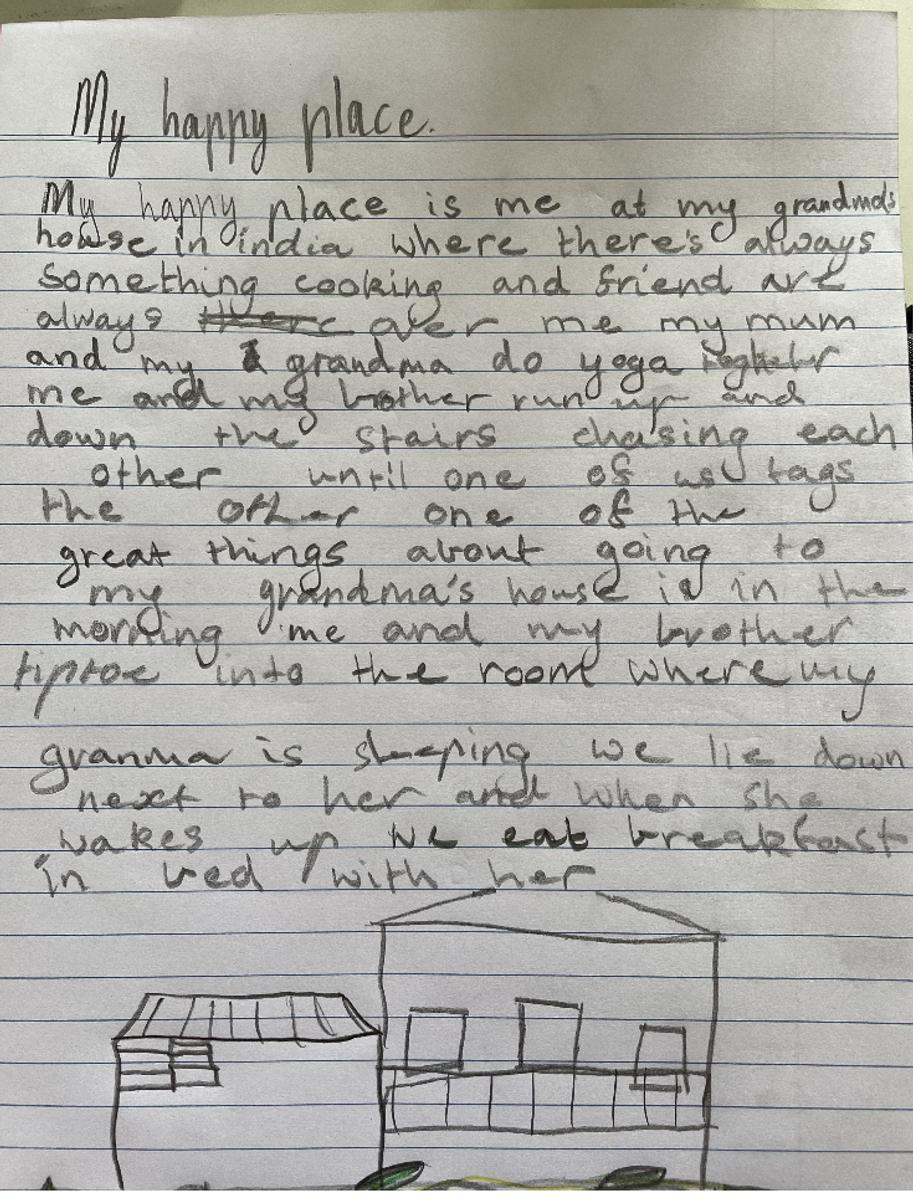 My happy place.
My happy place is me at my grandma's
house in india where there's always
something cooking and friend are
always there over me my mum
and my grandma do yoga
me and my brother run up and
down the stairs chasing each
other until one of us tags
the other one of the
great things about going to
my grandma's house is in the
morning me and my brother
tiptoe into the room where my
granma is sleeping we lie down
next to her and when she
wakes up we eat breakfast
in bed with her